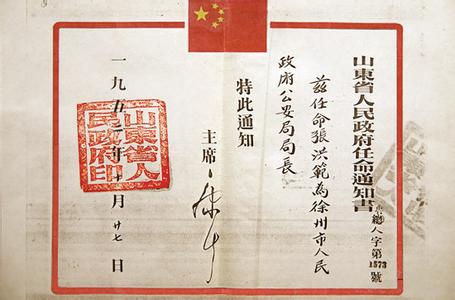 山東省人民政府任命通知書
總人字第1573號
茲任命張洪範為徐州市人民
政府公安局局長
特此通知
主席
一九五 年十月廿七日
山東省人
民政府印